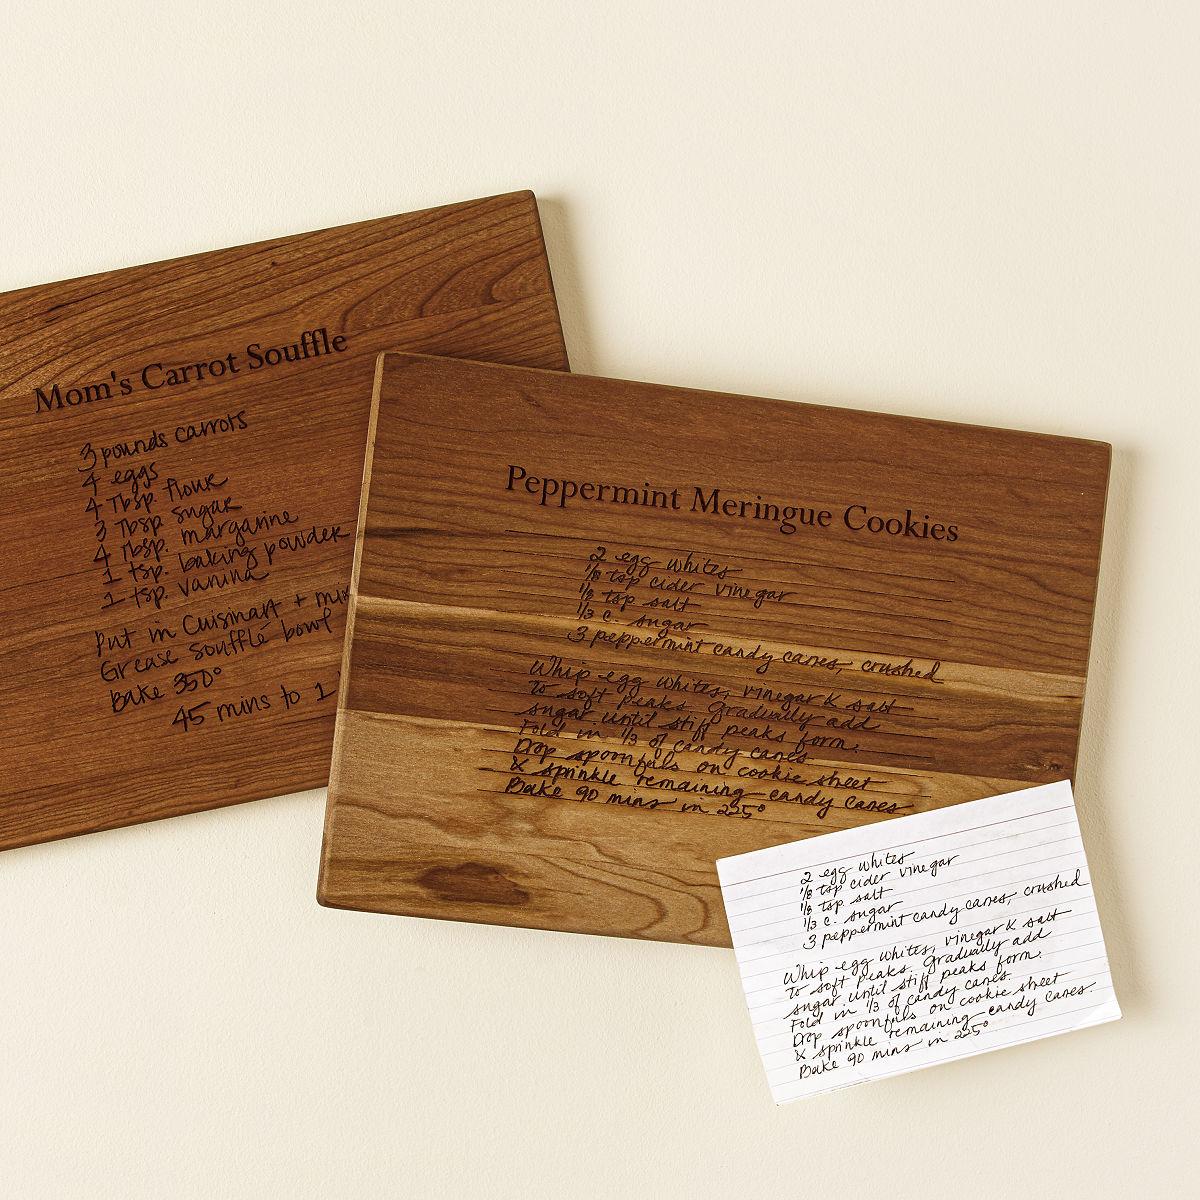 Mom's Carrot Souffle
3 pounds carrots
4 eggs
4 Tbsp. flour
3 Tbsp sugar
4 Tbsp. margarine
1 tsp. baking powder
1 tsp. vanilla
Put in Cuisinart + mix
Grease soufflé bowl
Bake 350°
45 mins to 1
Peppermint Meringue Cookies
2 egg whites
1/8 tsp cider vinegar
1/8 tsp salt
1/3 c. sugar
3 peppermint candy canes, crushed
Whip egg whites, vinegar & salt
to soft peaks. Gradually add
sugar until stiff peaks form.
Fold in 1/3 of candy canes.
Drop spoonfuls on cookie sheet
& sprinkle remaining candy canes
Bake 90 mins in 225°
2 egg whites
1/8 tsp cider vinegar
1/8 tsp. salt
1/3 c. sugar
3 peppermint candy canes, crushed
Whip egg whites, vinegar & salt
to soft peaks. Gradually add
sugar until stiff peaks form.
Fold in 1/3 of candy canes.
Drop spoonfuls on cookie sheet
& sprinkle remaining candy canes.
Bake 90 mins in 225°